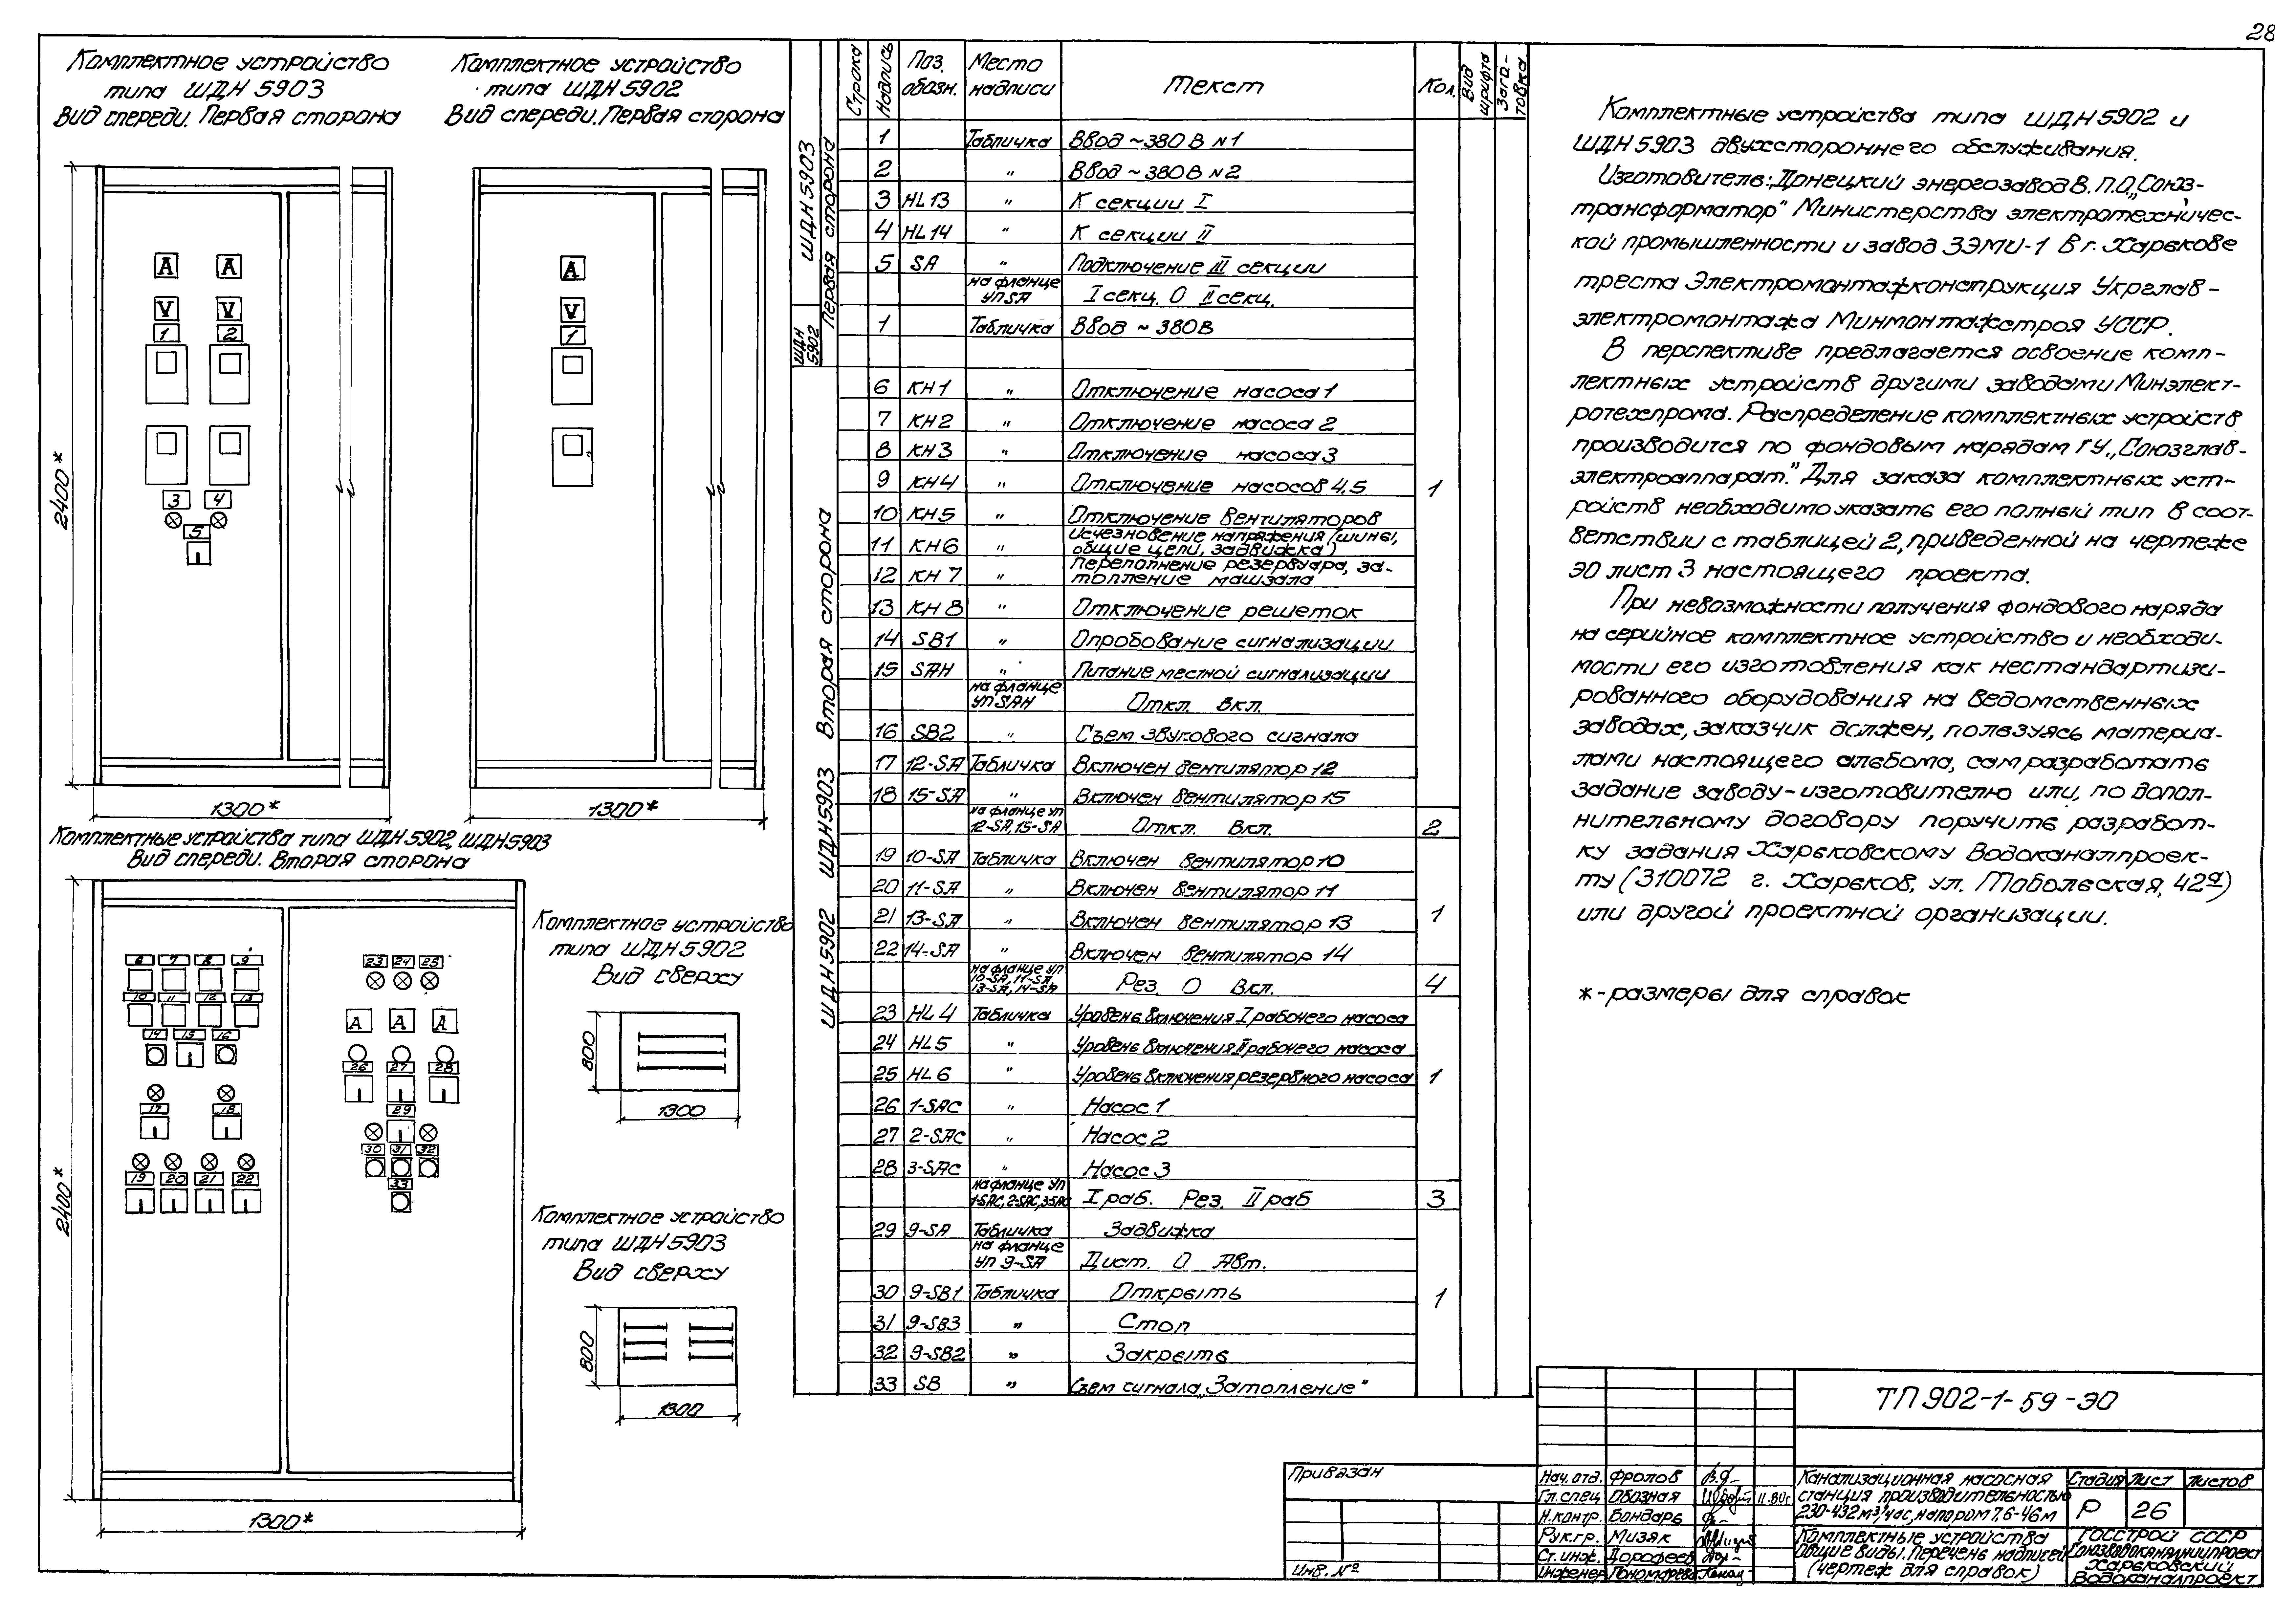 28
Комплектное устройство
типа ШДН 5903
Вид спереди. Первая сторона
Комплектное устройство
типа ШДН 5902
Вид спереди. Первая сторона
А А
V V
1 2
3 4
5
2400*
1300*
А
V
1
1300*
Комплектные устройства типа ШДН 5902, ШДН 5903
Вид спереди. Вторая сторона
6 7 8 9
10 11 12 13
14 15 16
17 18
19 20 21 22
23 24 25
А А А
26 27 28
29
30 31 32
33
2400*
1300*
Комплектное устройство
типа ШДН 5902
Вид сверху
800
1300
Комплектное устройство
типа ШДН 5903
Вид сверху
800
1300
Строка Надпись Поз. обозн. Место надписи Текст Кол. Вид шрифта Заготовка
ШДН 5903 Первая сторона
1 Табличка Ввод ~380 В N1
2 " Ввод ~380 В N2
3 HL13 " К секции I
4 HL14 " К секции II
5 SA " Подключение III секции
на фланце УП SA I секц. О II секц.
ШДН 5902
1 Табличка Ввод ~ 380 В
ШДН 5902 ШДН 5903 Вторая сторона
6 КН1 " Отключение насоса 1
7 КН2 " Отключение насоса 2
8 КН3 " Отключение насоса 3
9 КН4 " Отключение насосов 4,5 1
10 КН5 " Отключение вентиляторов
11 КН6 " Исчезновение напряжения (шины, общие цепи, задвижка)
12 КН 7 " Переполнение резервуара, затопление машзала
13 КН 8 " Отключение решеток
14 SB1 " Опробование сигнализации
15 SAH " Питание местной сигнализации
на фланце УП SAH Откл. Вкл.
16 SB2 " Съем звукового сигнала
17 12-SA Табличка Включен вентилятор 12
18 15-SA " Включен вентилятор 15
на фланце УП 12-SA, 15-SA Откл. Вкл. 2
19 10-SA Табличка Включен вентилятор 10
20 11-SA " Включен вентилятор 11
21 13-SA " Включен вентилятор 13 1
22 14-SA " Включен вентилятор 14
на фланце УП 10-SA, 11-SA, 13-SA, 14-SA Рез. О Вкл. 4
23 HL4 Табличка Уровень включения I рабочего насоса
24 HL5 " Уровень включения II рабочего насоса
25 HL6 " Уровень включения резервного насоса 1
26 1-SAC " Насос 1
27 2-SAC " Насос 2
28 3-SAC " Насос 3
на фланце УП 1-SAC, 2-SAC, 3-SAC I раб. Рез. II раб 3
29 9-SA Табличка Задвижка
на фланце УП 9-SA Дист. О Авт.
30 9-SB1 Табличка Открыть 1
31 9-SB3 " Стоп
32 9-SB2 " Закрыть
33 SB " Съем сигнала „Затопление"
Комплектные устройства типа ШДН 5902 и
ШДН 5903 двухстороннего обслуживания.
Изготовитель: Донецкий энергозавод В.П.О. „Союз-
трансформатор" Министерства электротехничес-
кой промышленности и завод ЗЭМИ-1 в г. Харькове
треста Электромонтажконструкция Укрглав-
электромонтажа Минмонтажстроя УССР.
В перспективе предлагается освоение комп-
лектных устройств другими заводами Минэлект-
ротехпрома. Распределение комплектных устройств
производится по фондовым нарядам ГУ „Союзглав-
электроаппарат". Для заказа комплектных уст-
ройств необходимо указать его полный тип в соот-
ветствии с таблицей 2, приведенной на чертеже
ЭО лист 3 настоящего проекта.
При невозможности получения фондового наряда
на серийное комплектное устройство и необходи-
мости его изготовления как нестандартизи-
рованного оборудования на ведомственных
заводах, заказчик должен, пользуясь материа-
лами настоящего альбома, сам разработать
задание заводу-изготовителю или, по допол-
нительному договору поручить разработ-
ку задания Харьковскому Водоканалпроек-
ту (310072 г. Харьков, ул. Тобольская, 42а)
или другой проектной организации.
*-размеры для справок
ТП 902-1-59-ЭО
Привязан
Инв. №
Нач. отд. Фролов
Гл. спец Обозная 11.80г
Н. контр. Бондарь
Рук. гр. Мизяк
Ст. инж. Дорофеев
Инженер Пономарева
Канализационная насосная
станция производительностью
230-432 м³/час, напором 7,6-46 м
Стадия Лист Листов
Р 26
Комплектные устройства
Общие виды. Перечень надписей
(чертеж для справок)
ГОССТРОЙ СССР
Союзводоканалниипроект
Харьковский
Водоканалпроект